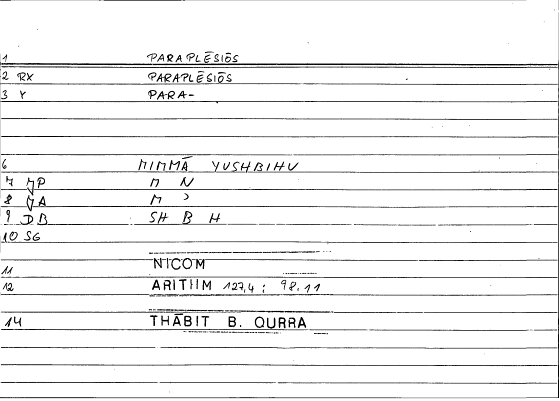 1 PARAPLĒSIŌS
2 RX PARAPLĒSIŌS
3 Y PARA-
6 MIMMĀ YUSHBIHU
7 JP M N
8 JA M ɔ
9 DB SH B H
10 SG
11 NICOM
12 ARITHM 127,4 ; 98.11
14 THĀBIT B. QURRA